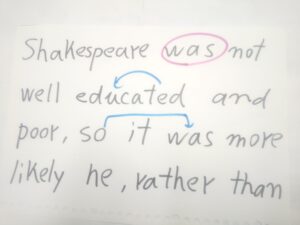 Shakespeare was not
well educated and
poor, so it was more
likely he, rather than